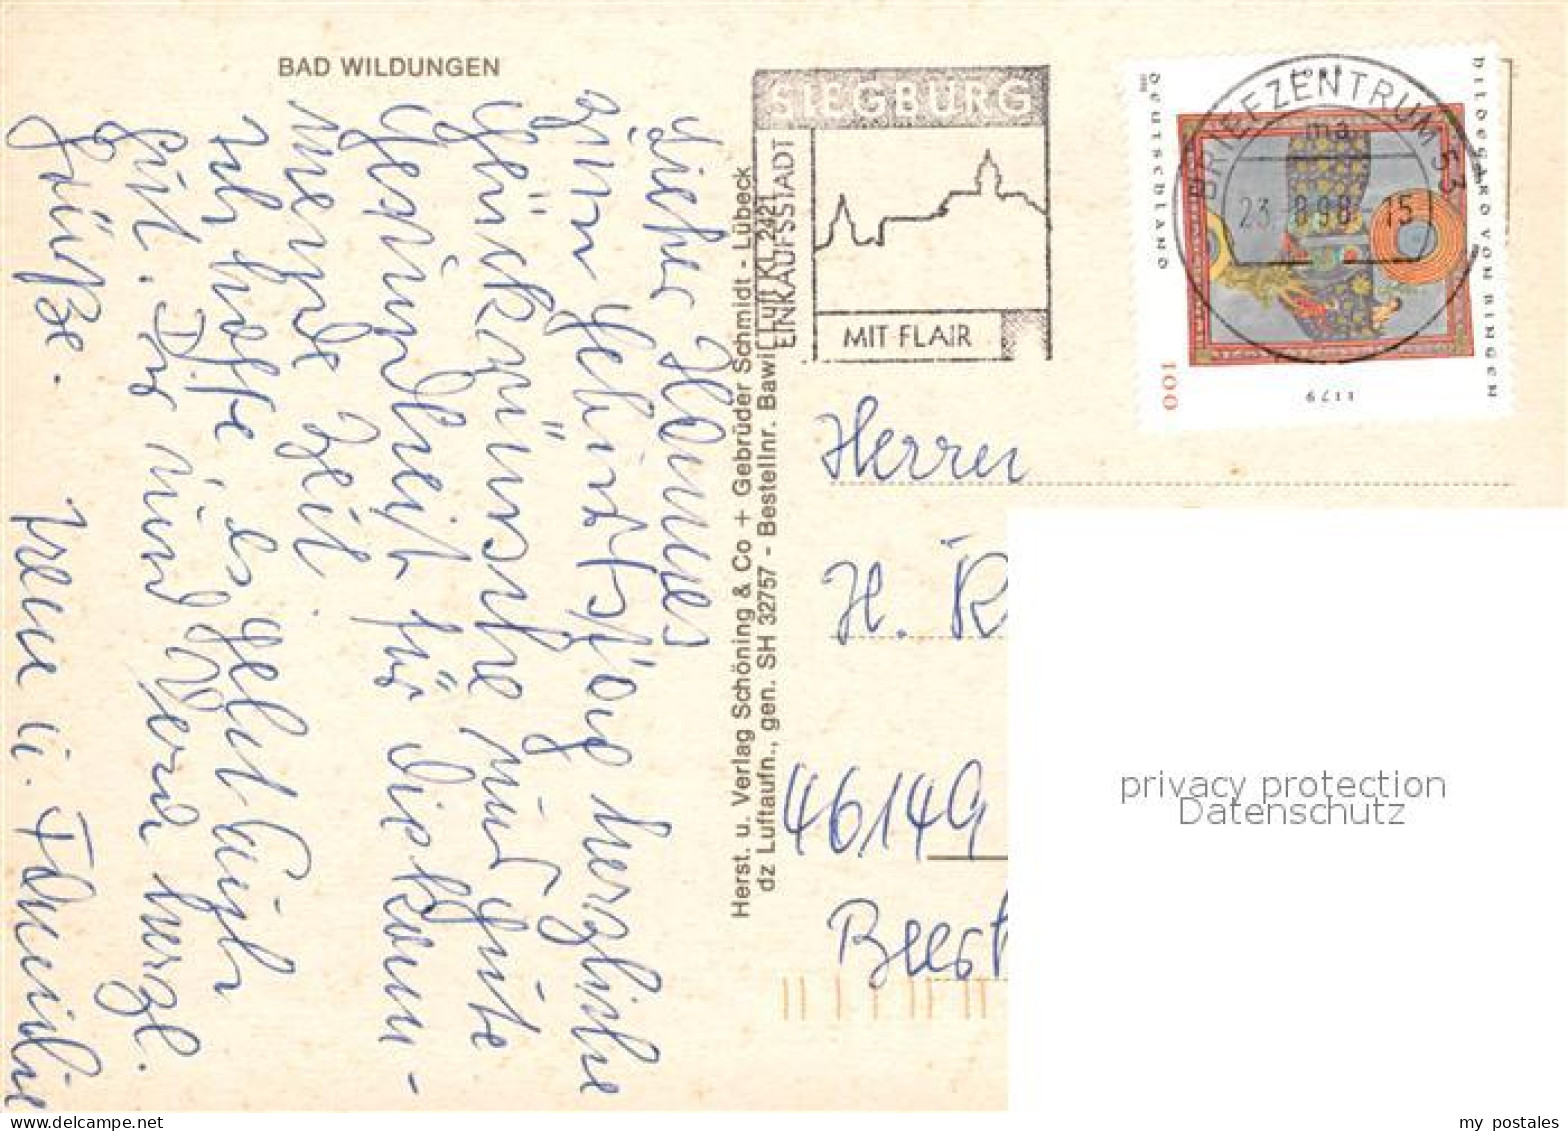 BAD WILDUNGEN
Lieber Hannes
zum Geburtstag herzliche
Glückwünsche und gute
Gesundheit für die kom-
mende Zeit.
Ich hoffe es geht Euch
gut. Dir und herzl.
Grüße. Irene u. Familie
Herst. u. Verlag Schöning & Co + Gebrüder Schmidt - Lübeck
dz Luftaufn., gen. SH 32757 - Bestellnr. Bawi
SIEGBURG
EINKAUFSSTADT
MIT FLAIR
BRIEFZENTRUM 53
ma
23. 8.98 - 15
DEUTSCHLAND
HILDEGARD VON BINGEN
1179
100
Herrn
H. K
46149
privacy protection
Datenschutz
my postales